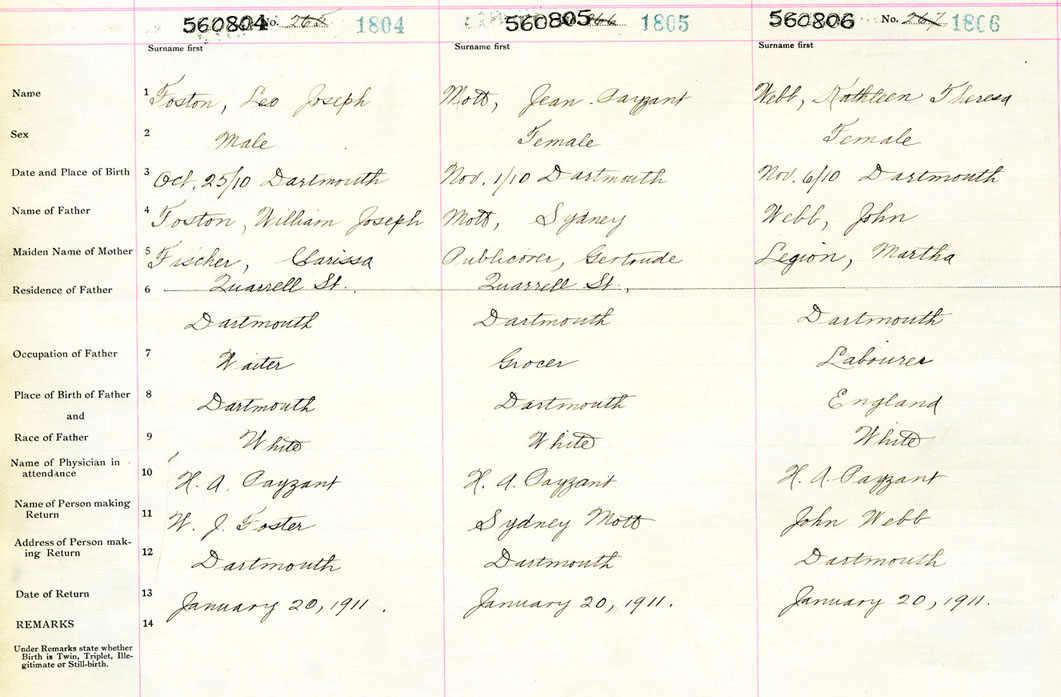 560804 No. 268 1804 560805 266 1805 560806 No. 267 1806
Surname first Surname first Surname first
Name 1 Foston, Leo Joseph Mott, Jean Payzant Webb, Kathleen Theresa
Sex 2 Male Female Female
Date and Place of Birth 3 Oct. 25/10 Dartmouth Nov. 1/10 Dartmouth Nov. 6/10 Dartmouth
Name of Father 4 Foston, William Joseph Mott, Sydney Webb, John
Maiden Name of Mother 5 Fischer, Clarissa Publicover, Gertrude Legion, Martha
Residence of Father 6 Quarrell St., Quarrell St.,
Dartmouth Dartmouth Dartmouth
Occupation of Father 7 Waiter Grocer Labourer
Place of Birth of Father 8 Dartmouth Dartmouth England
and
Race of Father 9 White White White
Name of Physician in
attendance 10 H. A. Payzant H. A. Payzant H. A. Payzant
Name of Person making
Return 11 W. J. Foster Sydney Mott John Webb
Address of Person mak-
ing Return 12 Dartmouth Dartmouth Dartmouth
Date of Return 13 January 20, 1911. January 20, 1911. January 20, 1911.
REMARKS 14
Under Remarks state whether
Birth is Twin, Triplet, Ille-
gitimate or Still-birth.